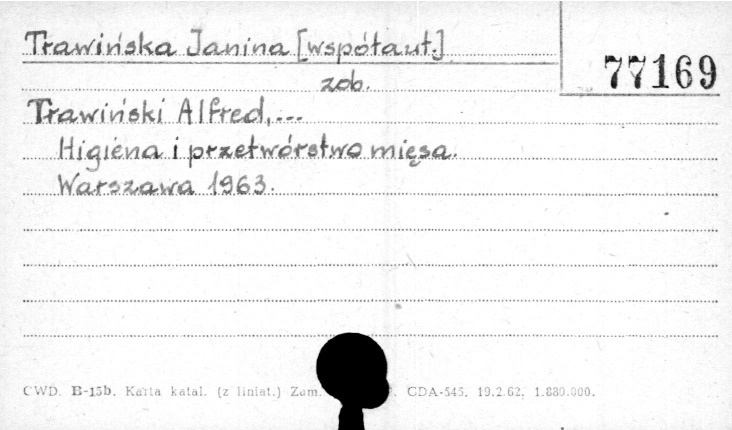 Trawińska Janina [współaut.]
77169
zob.
Trawiński Alfred,...
Higiena i przetwórstwo mięsa.
Warszawa 1963.
CWD. B-15b. Karta katal. (z liniat.) Zam. CDA-545. 19.2.62. 1.880.000.